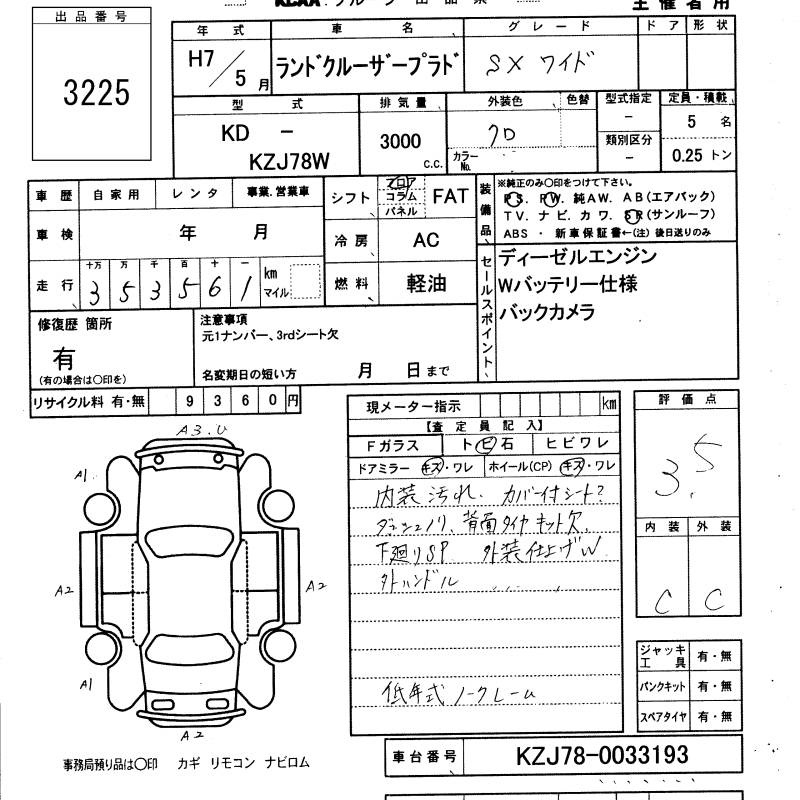 KCAA グループ 出品票
主催者用
出品番号
3225
年式 車名 グレード ドア 形状
H7/5月 ランドクルーザープラド SX ワイド
型式 排気量 外装色 色替 型式指定 定員・積載
KD - KZJ78W 3000 c.c. クロ カラーNo. - 5名
類別区分 - 0.25トン
車歴 自家用 レンタ 事業.営業車 シフト フロア コラム パネル FAT
車検 年 月 冷房 AC
走行 十万 万 千 百 十 一 km マイル
3 5 3 5 6 1 燃料 軽油
装備品
※純正のみ○印をつけて下さい。
PS. PW. 純AW. AB(エアバック)
TV. ナビ. カワ. SR(サンルーフ)
ABS ・ 新車保証書←(注) 後日送りのみ
セールスポイント
ディーゼルエンジン
Wバッテリー仕様
バックカメラ
修復歴 箇所
有
(有の場合は○印を)
注意事項
元1ナンバー、3rdシート欠
名変期日の短い方 月 日まで
リサイクル料 有・無 9 3 6 0 円
現メーター指示 km
【査定員記入】
Fガラス トビ石 ヒビワレ
ドアミラー キズ・ワレ ホイール(CP) キズ・ワレ
内装汚れ. カバー付シート?
ダッシュノリ、背面タイヤキット欠
下廻りSP 外装仕上げW
外ハンドル
低年式 ノークレーム
評価点
3.5
内装 外装
C C
ジャッキ工具 有・無
パンクキット 有・無
スペアタイヤ 有・無
A3.U
A1
A2
A2
A1
A2
事務局預り品は○印 カギ リモコン ナビロム
車台番号 KZJ78-0033193